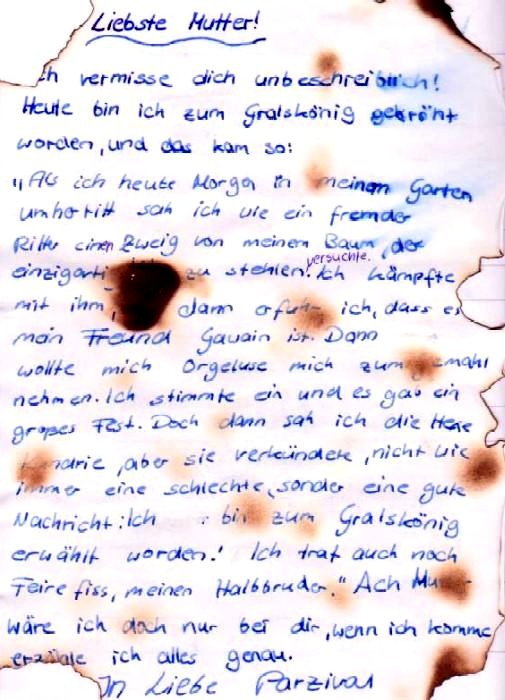 Liebste Mutter!
ch vermisse dich unbeschreiblich!
Heute bin ich zum Gralskönig gekrönt
worden, und das kam so:
"Als ich heute Morgen in meinem Garten
umherritt sah ich wie ein fremder
Ritter einen Zweig von meinem Baum, der
einzigarti zu stehlen versuchte. Ich kämpfte
mit ihm, dann erfuhr ich, dass es
mein Freund Gawain ist. Dann
wollte mich Orgeluse mich zum gemahl
nehmen. Ich stimmte ein und es gab ein
großes Fest. Doch dann sah ich die Hexe
Kundrie, aber sie verkündete, nicht wie
immer eine schlechte, sonder eine gute
Nachricht: Ich bin zum Gralskönig
erwählt worden! Ich traf auch noch
Feirefiss, meinen Halbbruder." Ach Mu
wäre ich doch nur bei dir, wenn ich komme
erzähle ich alles genau.
In Liebe Parzival